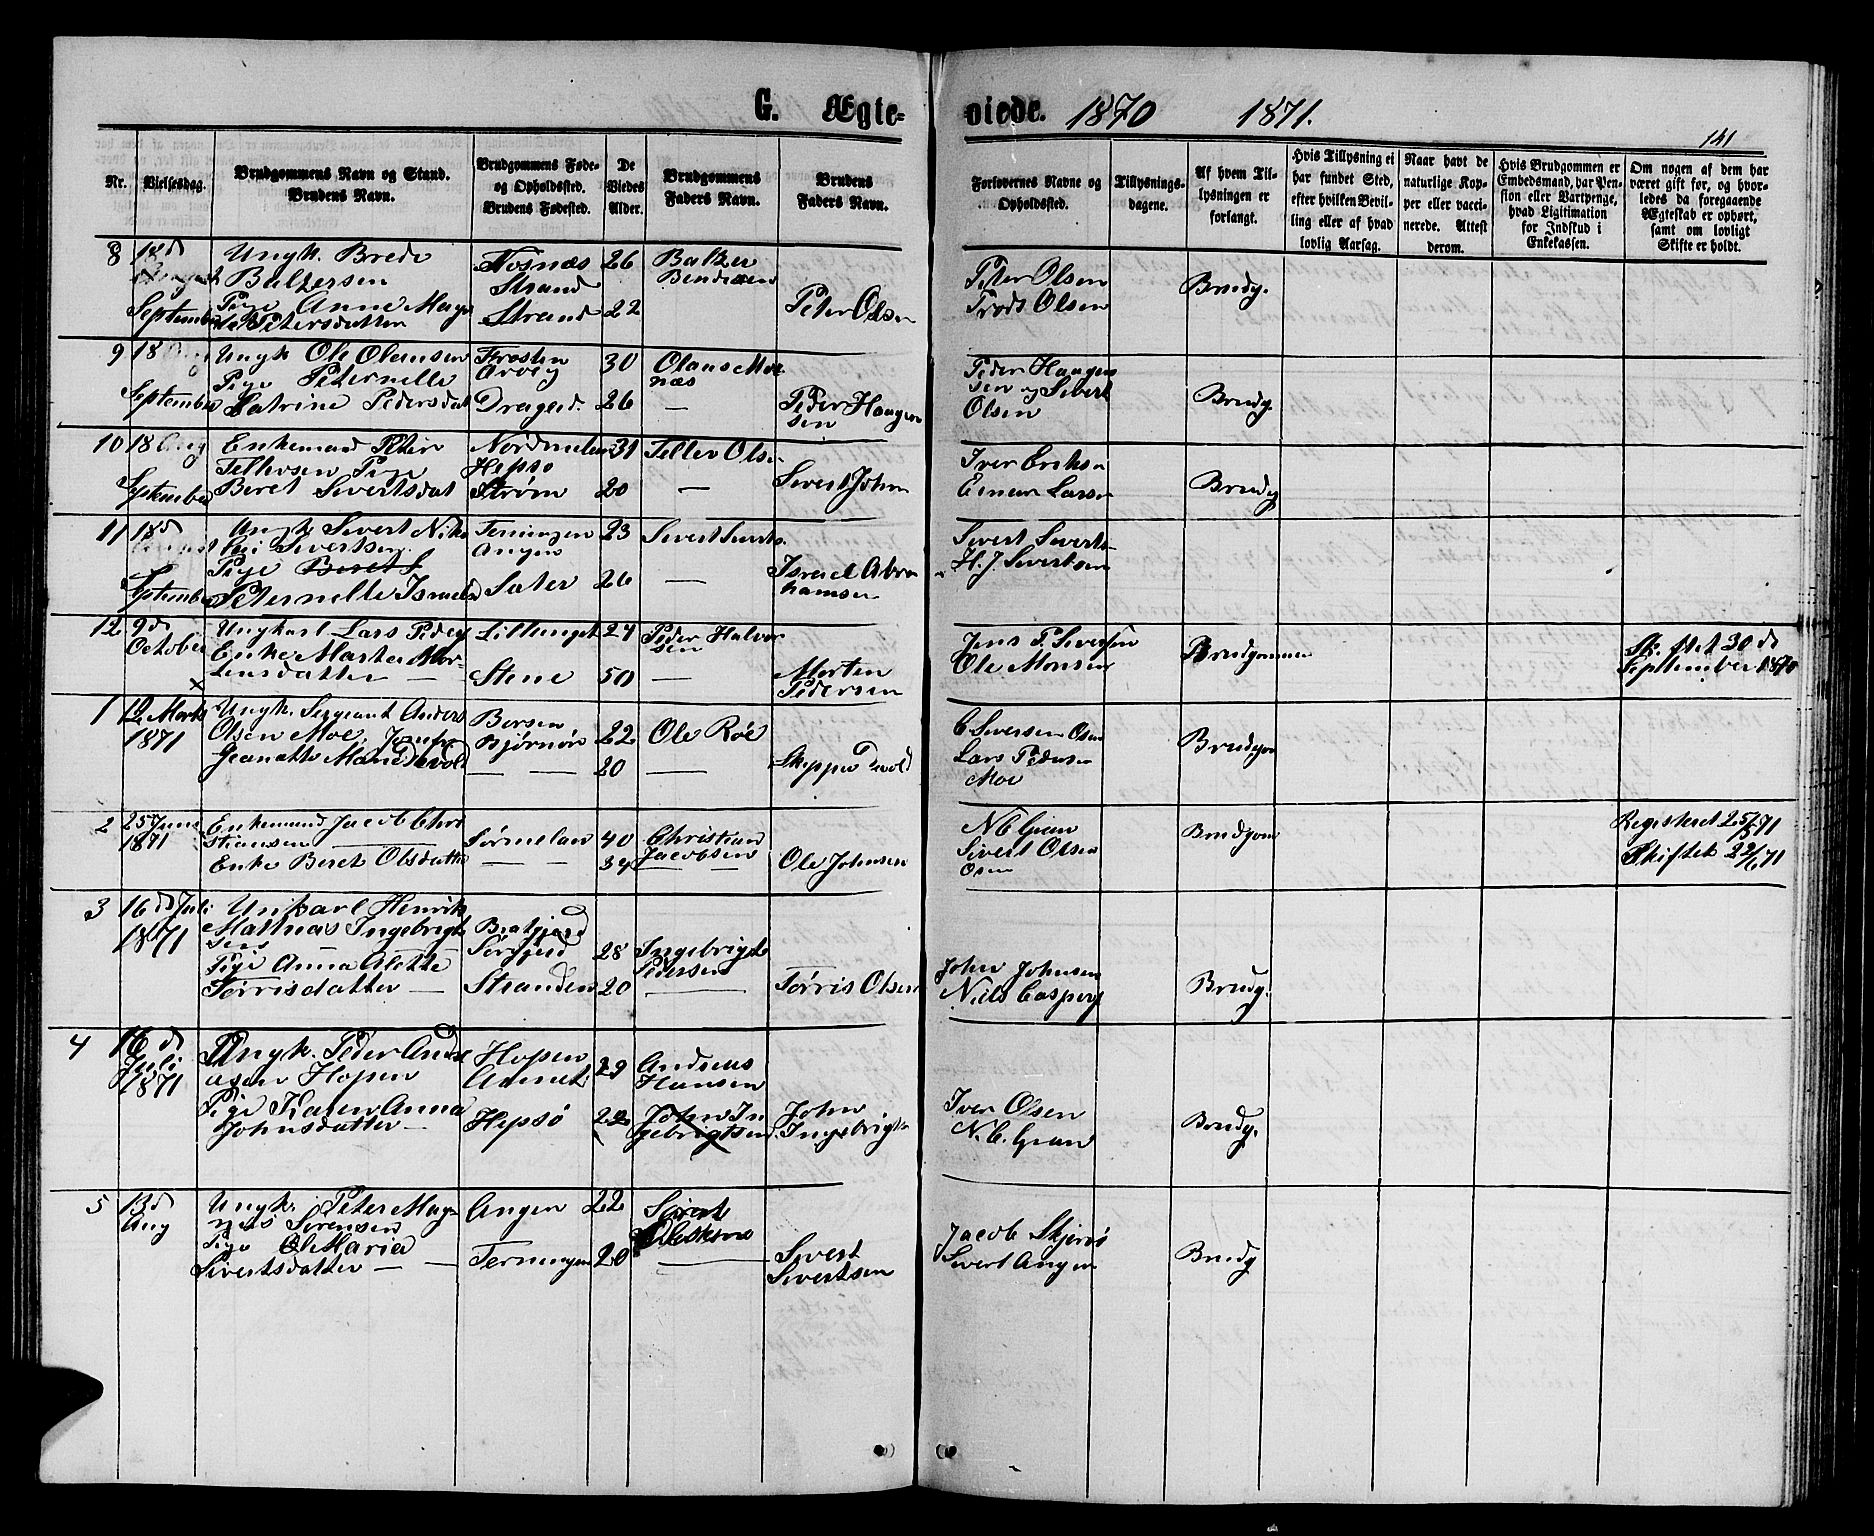 G. Ægte-
viede. 1870 1871.
141
Nr.
Vielsesdag.
Brudgommens Navn og Stand.
Brudens Navn.
Brudgommens Føde-
og Opholdssted.
Brudens Fødested.
De
Viedes
Alder.
Brudgommens
Faders Navn.
Brudens
Faders Navn.
Forlovernes Navne og
Opholdssted.
Tillysnings-
dagene.
Af hvem Til-
lysningen er
forlangt.
Hvis Tillysning ei
har fundet Sted,
efter hvilken Bevil-
ling eller af hvad
lovlig Aarsag.
Naar havt de
naturlige Kop-
per eller vacci-
nerede. Attest
derom.
Hvis Brudgommen er
Embedsmand, har Pen-
sion eller Vartpenge,
hvad Ligitimation
for Indskud i
Enkekassen.
Om nogen af dem har
været gift før, og hvor-
ledes da foregaaende
Ægteskab er ophørt,
samt om lovligt
Skifte er holdt.
8 18d
August
September
Ungk. Brede
Baltzersen
Pige Anne Mag
Petersdatter
Fosnæs
Strand
Strand
26
22
Baltzer
Bendixen
Peter Olsen
Peter Olsen
Trods Olsen
Brudg.
9 18 Aug
September
Ungk Ole Olausen
Pige Peternelle
Catrine Pedersdat
Frosten
Arveg
Drageid
30
26
Olaus Moe
næs
—
Peder Haagen
sen
Peder Haagen
sen og Sivert
Olsen
Brudg.
10 18 Aug
September
Enkemand Peter
Tellefsen Pige
Beret Sivertsdat
Nordmelan
Hepsø
Strøm
31
20
Teller Olse
—
Sivert John
Iver Eriksn
Einar Larsn
Brudg
11 18d
August
September
Ungk Sivert Niko
lai Sivertsen
Pige Beret S
Peternelle Israels
Terningen
Angen
Sæter
23
26
Sivert Siverts
—
Israel Abra
hamsen
Sivert Siverts
H. J. Sivertsen
12 9d
October
Ungkarl Lars Peders
Enke Marter Mor-
tensdatter —
Stene
24
50
Peder Halvor
sen
—
Morten
Pedersen
Jens P. Sivertsen
Ole Monsen
Brudgommen
Sk. 30 d
September 1870
1 12 Marts
1871
Ungk. Sergeant Anders
Olsen Moe, Jomfr
Jeanette Marie
Bersen
Bjørnør
— —
22
20
Ole Röe
—
Skipper
C Sivertsen Osen
Lars Pedersen
Moe
Brudgom
2 25 Juni
1871
Enkemand Jacob Chri
stiansen
Enke Beret Olsdatter
Sørmelan
— —
40
34
Christian
Jacobsen
— —
Ole Johnsen
N C Gran
Sivert Olsen
Osen
Brudgom
Registeret 25/5 71
Skiftet 22/6 71
3 16 d Juli
1871
Unkarl Henrik
Mathias Ingebrigt
sen —
Pige Anna Alette
Tørrisdatter —
Bratgjerd
Sørgjerd
Stranden
28
20
Ingebrigt
Pedersen
—
Tørris Olsen
John Johnsen
Niels Caspers
Brudg.
4 16 d
Juli
1871
Ungk. Peder Andre
asen Hopen
Pige Karen Anna
Johnsdatter —
Hopen
Hepsø
29
22
Andreas
Hansen
John In
gebrigtsen
John
Ingebrigts
Iver Olsen
N. C. Gran
Brudg.
5 13d
Aug
Ungk. Peter Mag-
nus Sørensen
Pige Ole Maria
Sivertsdatter — —
Angen
Terningen
22
20
—
Sivert
Sivertsen
Jacob Skjervø
Sivert Angen
Brudg